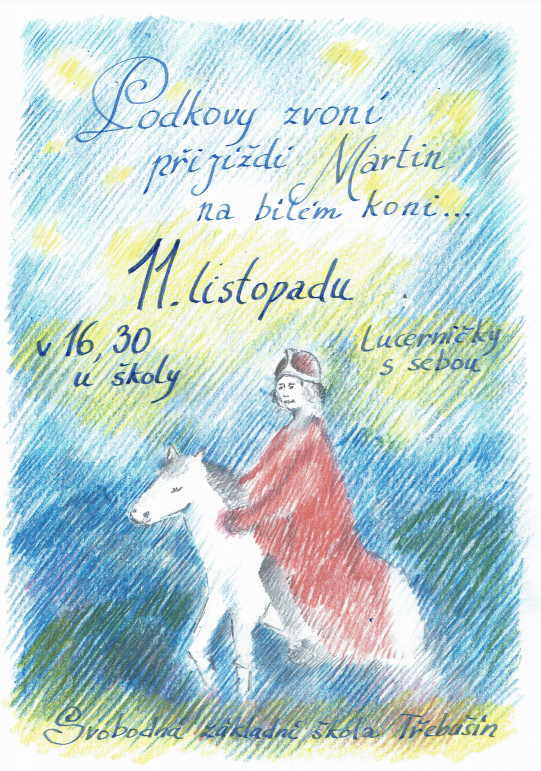 Podkovy zvoní
přijíždí Martin
na bílém koni...
11. listopadu
v 16,30
u školy
Lucerničky
s sebou
Svobodná základní škola Třebušín